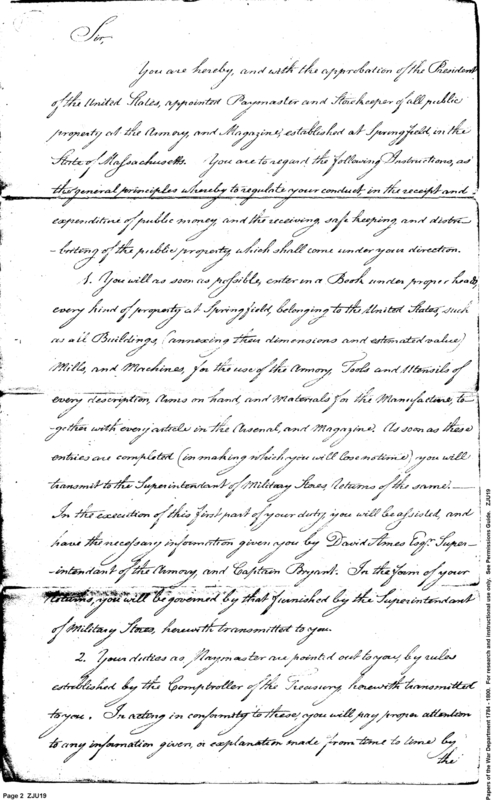 Sir,
You are hereby, and with the approbation of the President
of the United States, appointed Paymaster and Storekeeper of all public
property at the Armory, and Magazine, established at Springfield, in the
State of Massachusetts. You are to regard the following Instructions, as
the general principles whereby to regulate your conduct in the receipt and
expenditure of public money, and the receiving, safe keeping, and distri-
-buting of the public property, which shall come under your direction.
1. You will as soon as possible, enter in a Book under proper heads,
every kind of property at Springfield, belonging to the United States, such
as all Buildings, (annexing their dimensions and estimated value)
Mills, and Machines, for the use of the Armory, Tools and Utensils of
every description, Arms on hand, and Materials for the Manufacture, to-
gether with every article in the Arsenal, and Magazine. As soon as these
entries are completed (in making which you will lose no time) you will
transmit to the Superintendant of Military Stores, Returns of the same.
In the execution of this first part of your duty, you will be assisted, and
have the necessary information given you by David Ames Esqr. Super-
-intendant of the Armory, and Captain Bryant. In the form of your
Returns, you will be governed by that furnished by the Superintendant
of Military Stores, herewith transmitted to you.
2. Your duties as Paymaster are pointed out to you, by rules
established by the Comptroller of the Treasury, herewith transmitted
to you. In acting in conformity to these, you will pay proper attention
to any information given, or explanation made from time to time by
the
Page 2 ZJU19
Papers of the War Department 1784 - 1800. For research and instructional use only. See Permissions Guide. ZJU19